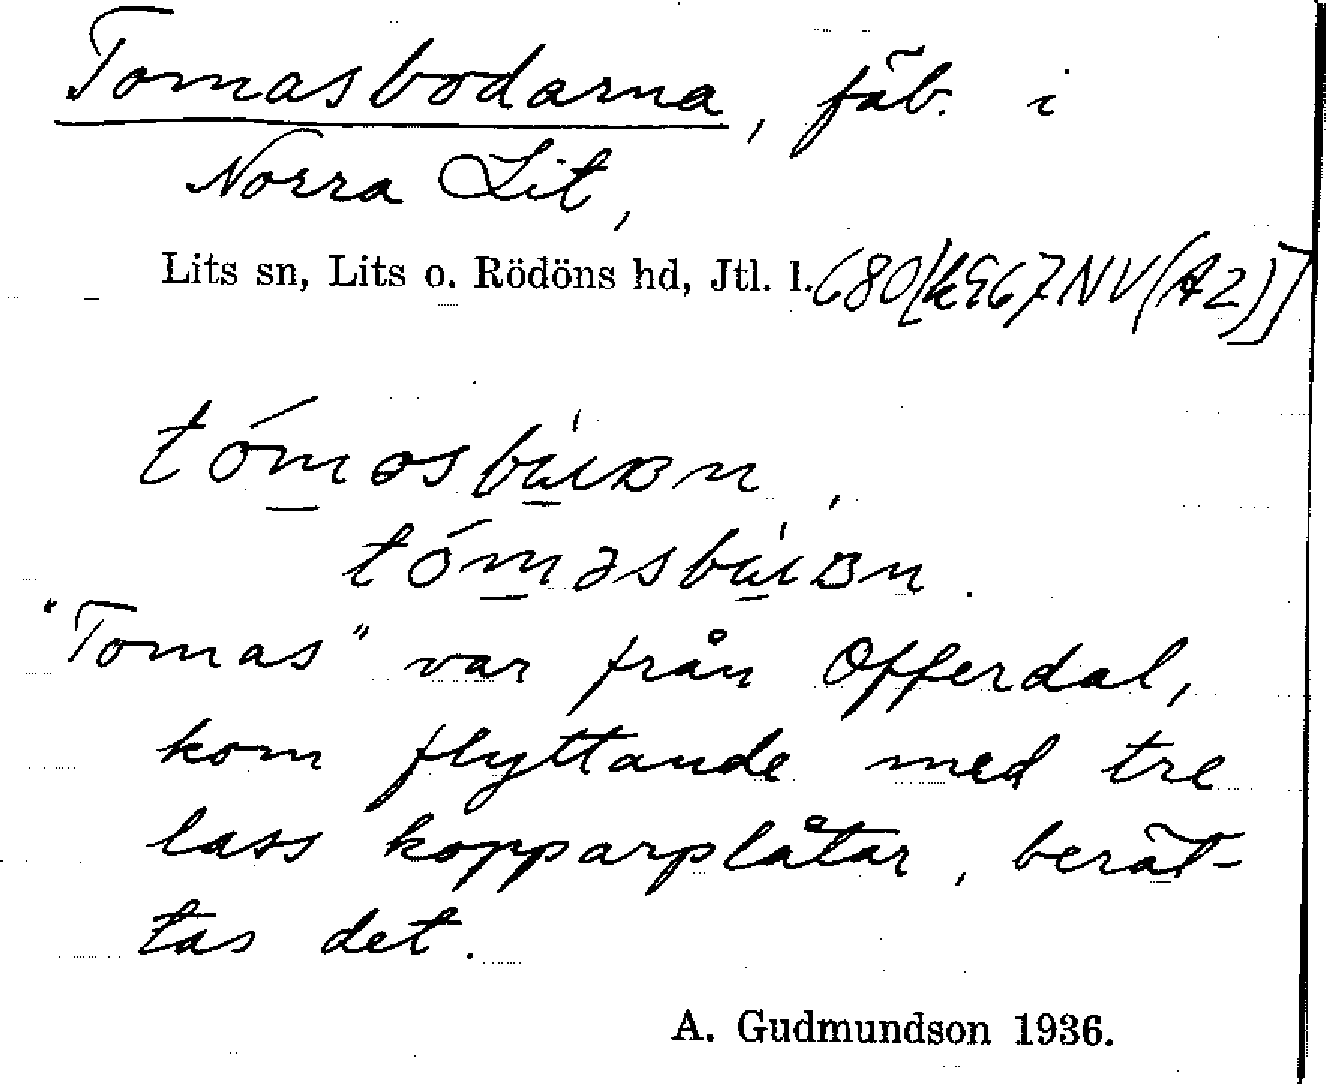 Tomasbodarna, fäb. i
Norra Lit,
Lits sn, Lits o. Rödöns hd, Jtl. l. 680[k967NV(A2)]
tómasbúɩʙn,
tóməsbúɩʙn.
"Tomas" var från Offerdal,
kom flyttande med tre
lass kopparplåtar, berät-
tas det.
A. Gudmundson 1936.